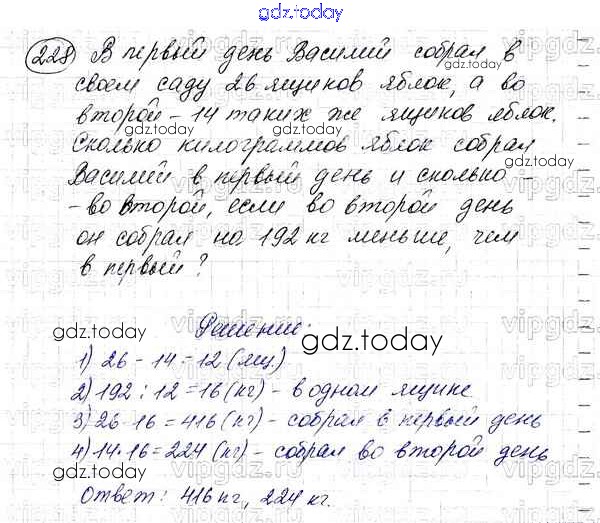 gdz.today
228 В первый день Василий собрал в
своем саду 26 ящиков яблок, а во
второй - 14 таких же ящиков яблок.
Сколько килограммов яблок собрал
Василий в первый день и сколько -
- во второй, если во второй день
он собрал на 192 кг меньше, чем
в первый?
Решение:
1) 26 - 14 = 12 (ящ.)
2) 192 : 12 = 16 (кг) - в одном ящике
3) 26 · 16 = 416 (кг) - собрал в первый день
4) 14 · 16 = 224 (кг) - собрал во второй день
Ответ: 416 кг, 224 кг.
gdz.today
gdz.today
gdz.today
gdz.today
gdz.today
gdz.today
gdz.today
gdz.today
gdz.today
gdz.today